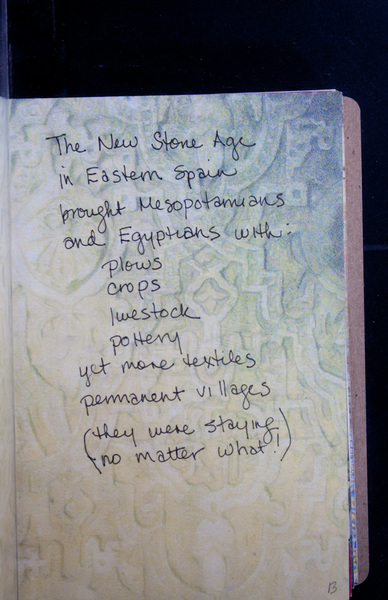 The New Stone Age
in Eastern Spain
brought Mesopotamians
and Egyptians with:
plows
crops
livestock
pottery
yet more textiles
permanent villages
(they were staying
no matter what!)
13